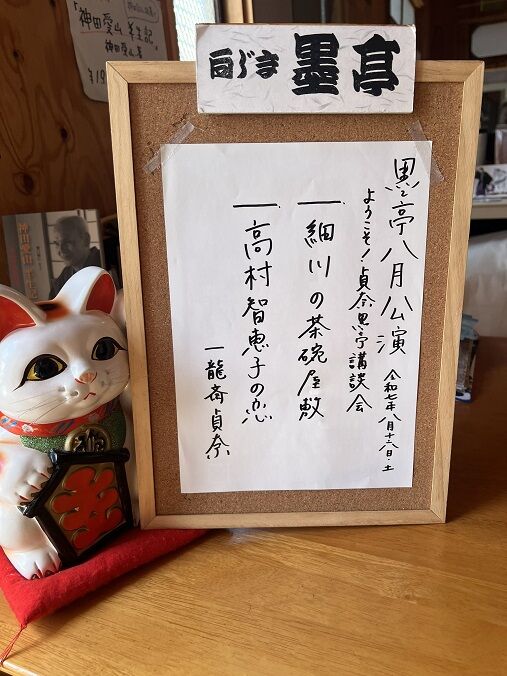 向じま 墨亭
墨亭八月公演 令和七年八月十六日・土
ようこそ!貞奈墨亭講談会
一 細川の茶碗屋敷
一 高村智恵子の恋
一龍斎貞奈
「神田愛山 半生記」
神田愛山著